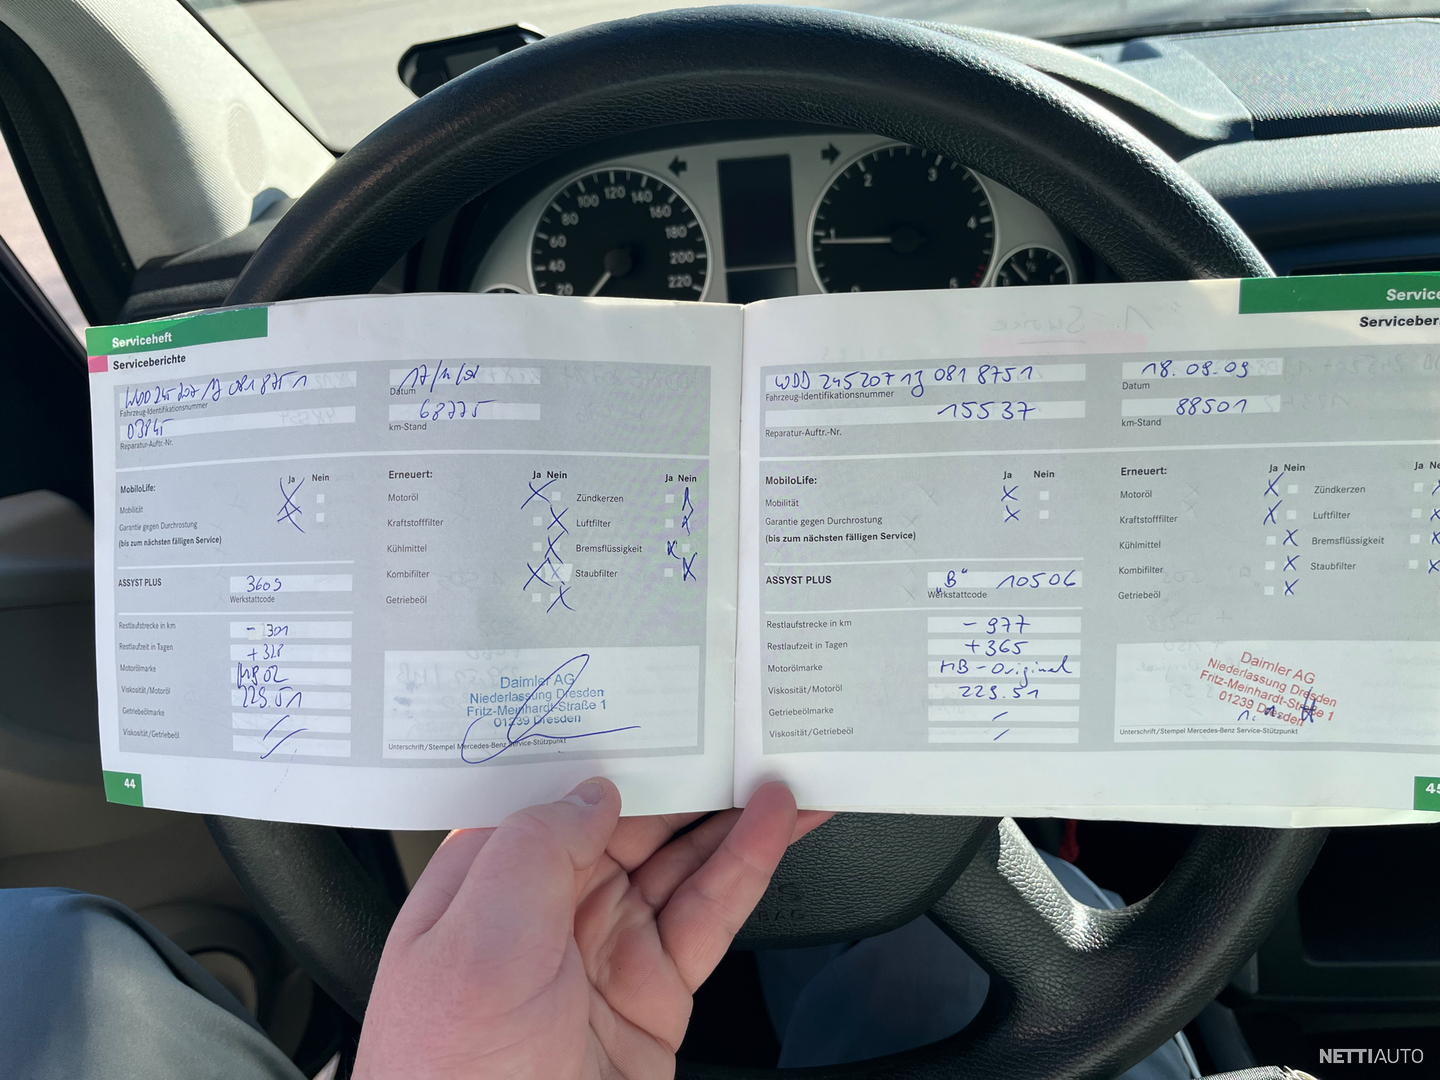 20 40 60 80 100 120 140 160 180 200 220
1 2 3 4
Serviceheft
Serviceberichte
WDD 245 207 1J 0818751
Fahrzeug-Identifikationsnummer
03845
Reparatur-Auftr.-Nr.
Datum
68775
km-Stand
MobiloLife:
Ja Nein
Mobilität
Garantie gegen Durchrostung
(bis zum nächsten fälligen Service)
Erneuert:
Ja Nein
Ja Nein
Motoröl
Zündkerzen
Kraftstofffilter
Luftfilter
Kühlmittel
Bremsflüssigkeit
Kombifilter
Staubfilter
Getriebeöl
ASSYST PLUS
3609
Werkstattcode
Restlaufstrecke in km
- 301
Restlaufzeit in Tagen
+328
Motorölmarke
Viskosität/Motoröl
229.51
Getriebeölmarke
Viskosität/Getriebeöl
Daimler AG
Niederlassung Dresden
Fritz-Meinhardt-Straße 1
01239 Dresden
Unterschrift/Stempel Mercedes-Benz Service-Stützpunkt
44
Service
Serviceber
WDD 245207 1J 0818751
Fahrzeug-Identifikationsnummer
15537
Reparatur-Auftr.-Nr.
18.09.09
Datum
88501
km-Stand
MobiloLife:
Ja Nein
Mobilität
Garantie gegen Durchrostung
(bis zum nächsten fälligen Service)
Erneuert:
Ja Nein
Ja Ne
Motoröl
Zündkerzen
Kraftstofffilter
Luftfilter
Kühlmittel
Bremsflüssigkeit
Kombifilter
Staubfilter
Getriebeöl
ASSYST PLUS
"B" 10506
Werkstattcode
Restlaufstrecke in km
- 977
Restlaufzeit in Tagen
+365
Motorölmarke
MB-Original
Viskosität/Motoröl
229.51
Getriebeölmarke
Viskosität/Getriebeöl
Daimler AG
Niederlassung Dresden
Fritz-Meinhardt-Straße 1
01239 Dresden
Unterschrift/Stempel Mercedes-Benz Service-Stützpunkt
45
NETTIAUTO